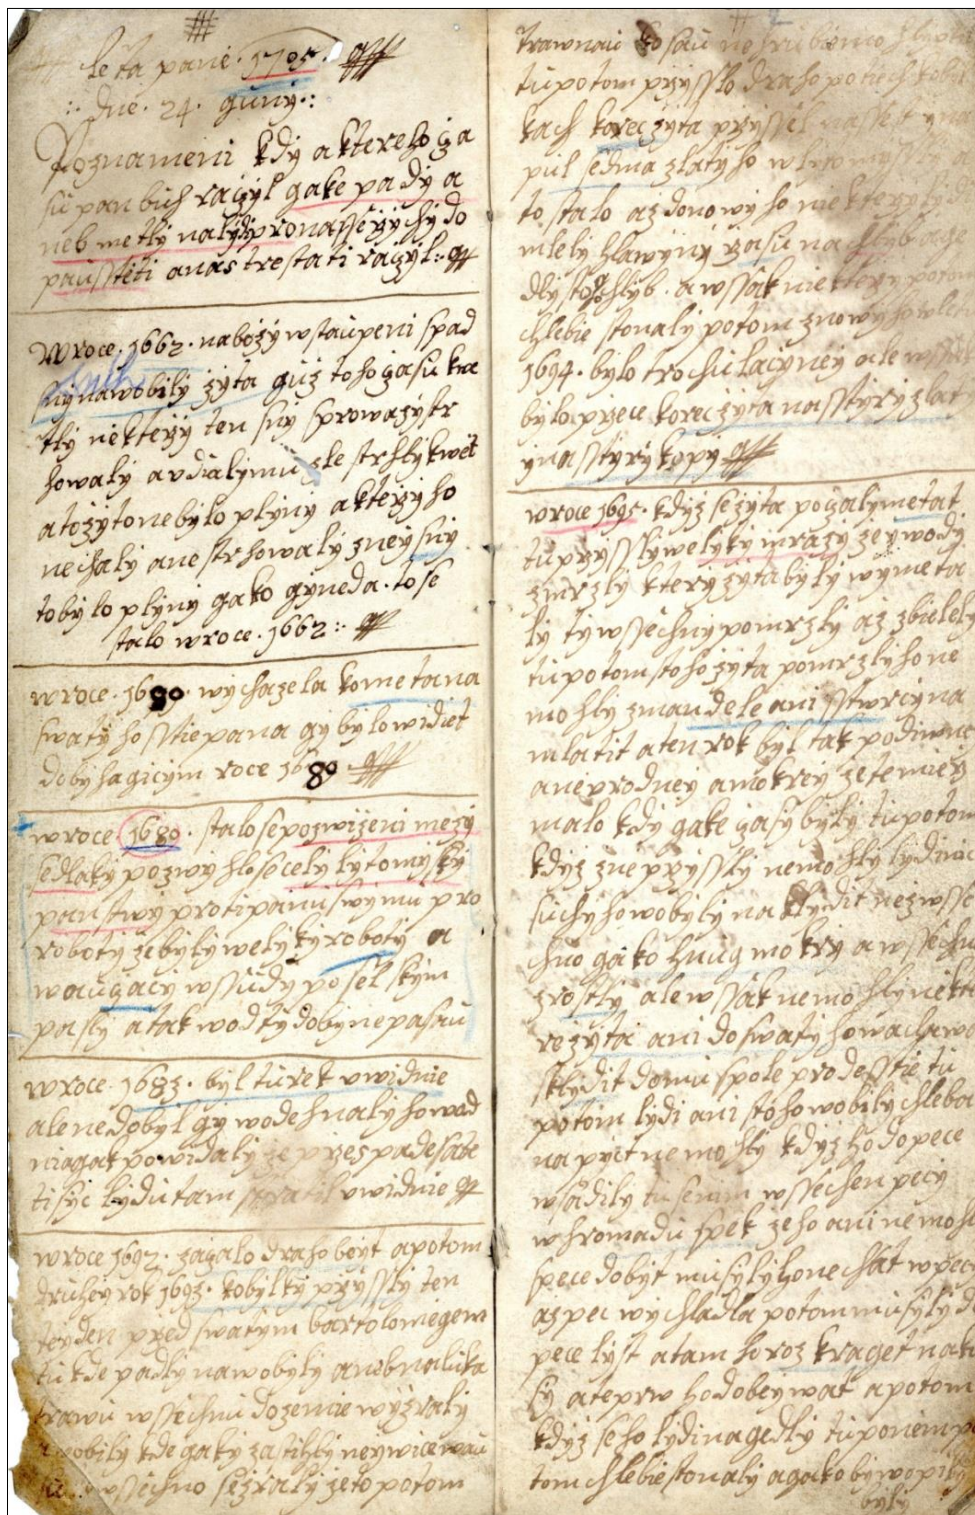 leta panie · 1705 ·
:· dnė · 24 · guny ·:
Poznameni kdy a ktereho ċa
su pan buh raċyl gake pady a
neb metly na lydy pro nasse hrychy do
pausstėti a nas trestati raċyl ::
Wroce · 1662 · na bozy wstaupeni spad
snyh na wobily zyta guz toho ċasu kwe
tly niektery ten snyh s prowazy str
howaly a vdialy mu zle strhly kwėt
a to zyto nebylo plyny a ktery ho
nechaly a nestrhowaly z ney sny
to bylo plyny gako gyneda · to se
stalo wroce · 1662 ::
wroce · 1680 · wychazela kometa na
swatyho sstiepana gy bylo widiet
do byhagicym roce 1680
wroce 1680 · stalo se pozwizeni mezy
sedlaky pozwyhlo se cely lytomysky
panstwy proti panu swymu pro
roboty ze byly welyky roboty a
wougacy wssudy po selskym
pasly a tak wod ty doby nepasau
wroce · 1683 · byl turek v widnie
ale nedobyl gy wodehnaly ho wod
nia gak powidaly ze przes padesate
tisyc lydu tam stratil v widnie
wroce 1692 · zaċalo draho beyt a potom
druhey rok 1693 · kobylky przyssly ten
teyden przed swatym bartolomegem
tu kde padly na wobyly aneb na luka
trawu wssechnu do zemie wyzraly
wobily kde gaky zatihly neywice
wssechno sezraly ze to potom
trawnau kosau
tu potom przysslo draho po tiech kobyl
kach korec zyta przyssel
pul sedma zlatyho
to stalo az do nowyho niektery
mlely hlawyny zasu na chlyb a ge
dly sto chlyb · a wssak niektery potom
chlebie stonaly potom z nowyho w leta
1694 · bylo trochu lacyney ale wssak
bylo przece korec zyta na sstyry zlat
y na sstyry kopy
wroce 1695 · kdyz se zyta poċaly metat
tu przyssly welyky mrazy ze y wody
zmrzly ktery zyta byly wymeta
ly ty wssechny pomrzly az zbielely
tu potom stoho zyta pomrzlyho ne
mohly z mandele ani sstwrcy na
mlatit a ten rok byl tak podiwne
ane w rodney a mokrey ze temierz
malo kdy gake ċasy byly tu potom
kdyz znė przyssly nemohly lydi nic
suchyho wobyly naklydit nez wsse
chno gako hnug mokry a wssechno
zrostly ale wssak nemohly niekte
re zyta ani do swatyho waclawa
sklydit domu s pole pro desstie tu
potom lydi ani stoho wobily chleba
napyct nemohly kdyz ho do pece
wsadily tu se nim wssechen pecy
w hromadu spek ze ho ani nemohl
s pece dobyt musyly ho nechat w pecy
az pec wychladla potom musyly do
pece lyst a tam ho rozkraget na ku
sy a teprw ho dobeywat a potom
kdyz se ho lydi nagedly tu po niem po
tom chlebie stonaly a gako by wopily
byly